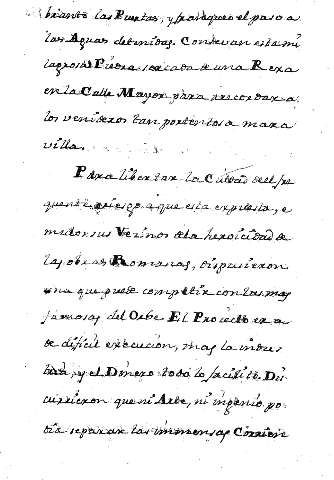 briante las Puertas, y franqueò el paso a
las Aguas detenidas. Conservan esta mi
lagrosa Piedra cercada de una Rexa
en la Calle Mayor para recordar a
los venideros tan portentosa mara
villa.
Para libertar la Ciudad del fre
quente riesgo à que esta expuesta, e
mulor sus Vecinos de la heroicidad de
las obras Romanas, dispusieron
una que puede competir con las mas
famosas del Orbe El Proyecto era
de dificil execucion, mas la indus
tria, y el Dinero todo lo facilitò. Dis
currieron que ni Arte, ni ingenio po
dia separar las immensas Corrien